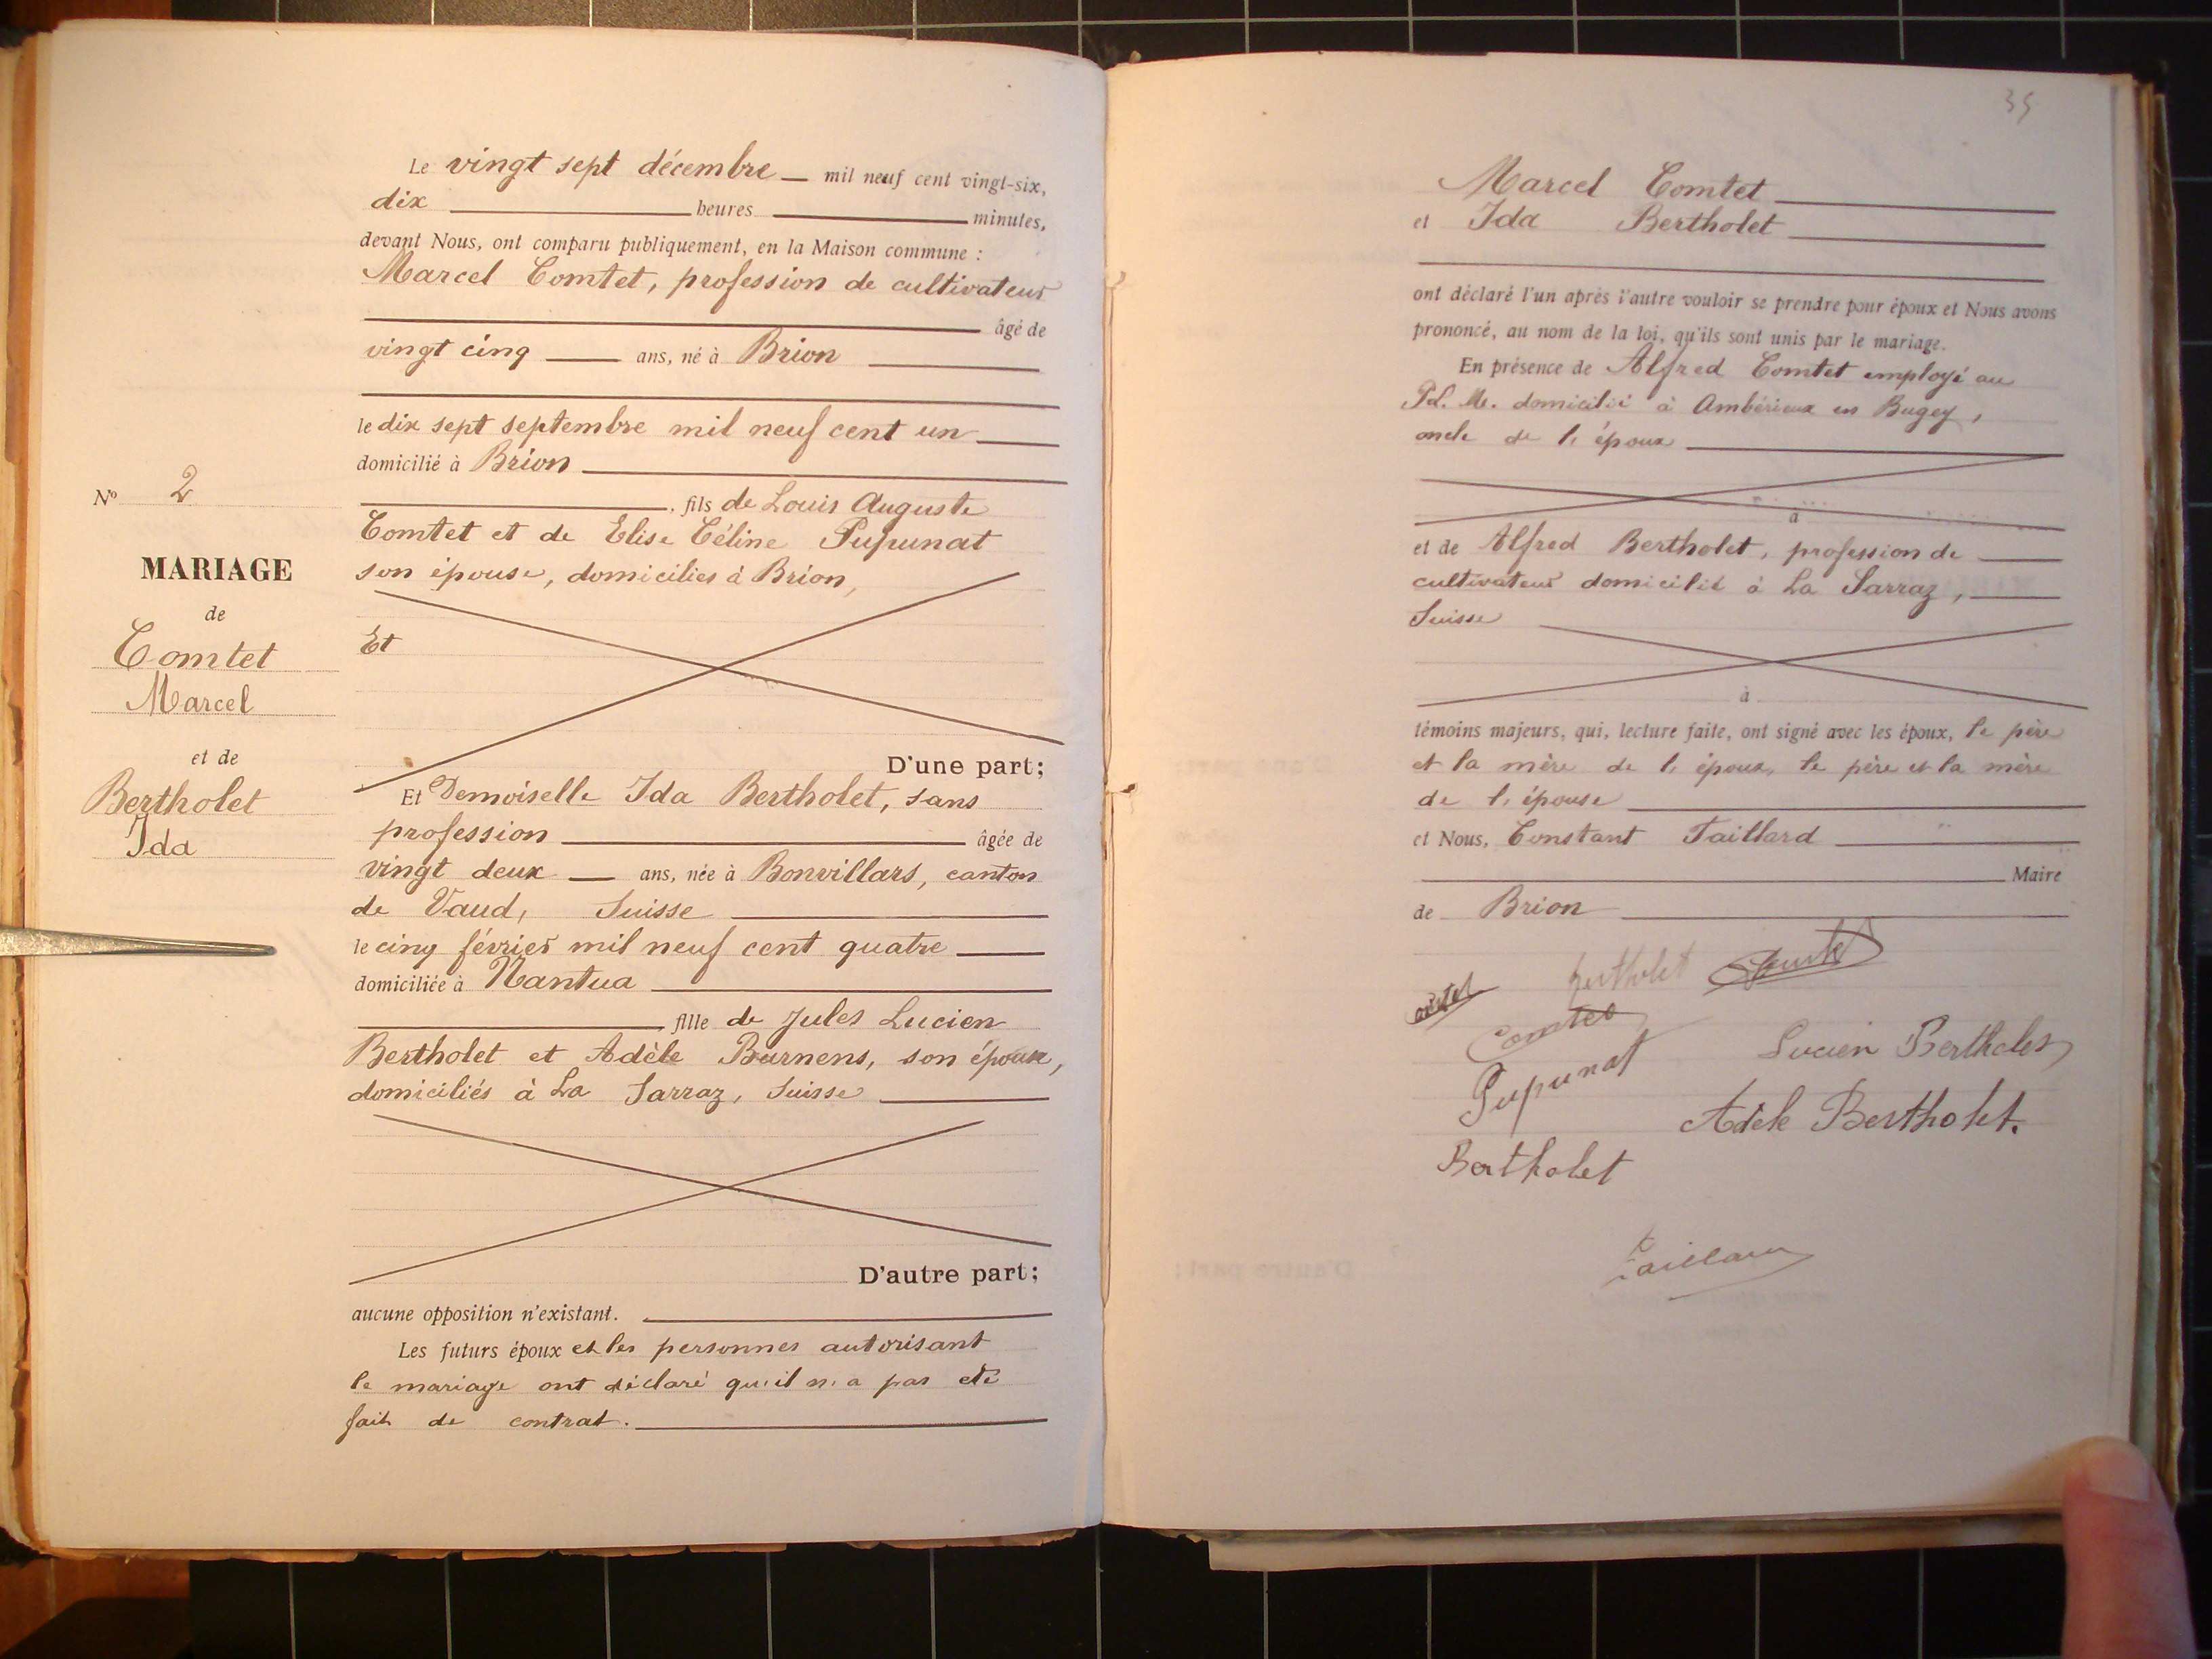 Le vingt sept décembre mil neuf cent vingt-six,
dix heures minutes,
devant Nous, ont comparu publiquement, en la Maison commune :
Marcel Comtet, profession de cultivateur
âgé de
vingt cinq ans, né à Brion
le dix sept septembre mil neuf cent un
domicilié à Brion
fils de Louis Auguste
Comtet et de Elise Céline Pupunat
son épouse, domiciliés à Brion,
Et
D'une part;
Nº 2
MARIAGE
de
Comtet
Marcel
et de
Bertholet
Ida
Et Demoiselle Ida Bertholet, sans
profession âgée de
vingt deux ans, née à Bonvillars, canton
de Vaud, Suisse
le cinq février mil neuf cent quatre
domiciliée à Nantua
fille de Jules Lucien
Bertholet et Adèle Burnens, son épouse,
domiciliés à La Sarraz, Suisse
D'autre part;
aucune opposition n'existant.
Les futurs époux et les personnes autorisant
le mariage ont déclaré qu'il n'a pas été
fait de contrat.
35
Marcel Comtet
et Ida Bertholet
ont déclaré l'un après l'autre vouloir se prendre pour époux et Nous avons
prononcé, au nom de la loi, qu'ils sont unis par le mariage.
En présence de Alfred Comtet employé au
P.L.M. domicilié à Ambérieux en Bugey,
oncle de l'époux
à
et de Alfred Bertholet, profession de
cultivateur domicilié à La Sarraz,
Suisse
à
témoins majeurs, qui, lecture faite, ont signé avec les époux, le père
et la mère de l'époux, le père et la mère
de l'épouse
et Nous, Constant Taillard
Maire
de Brion
Bertholet
Comtet
Pupunat
Lucien Bertholet
Adèle Bertholet.
Bertholet
Taillard